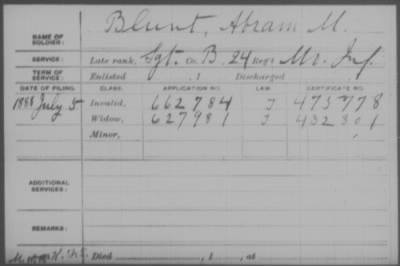 NAME OF SOLDIER: Blunt, Abram M.
SERVICE: Late rank, Sgt. Co. B, 24 Reg't Mo. Inf.
TERM OF SERVICE: Enlisted , 1 Discharged , 1
DATE OF FILING. CLASS. APPLICATION NO. LAW. CERTIFICATE NO.
1888 July 5 Invalid, 662784 J 475778
Widow, 627981 J 432301
Minor,
ADDITIONAL SERVICES:
REMARKS:
Died , 1 , at